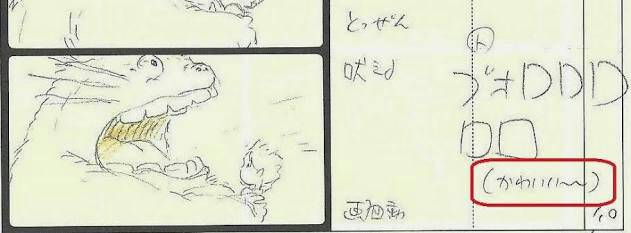 とつぜん
ト
吠える
ブオロロロ
ロロ
(かわいい〜)
画面動